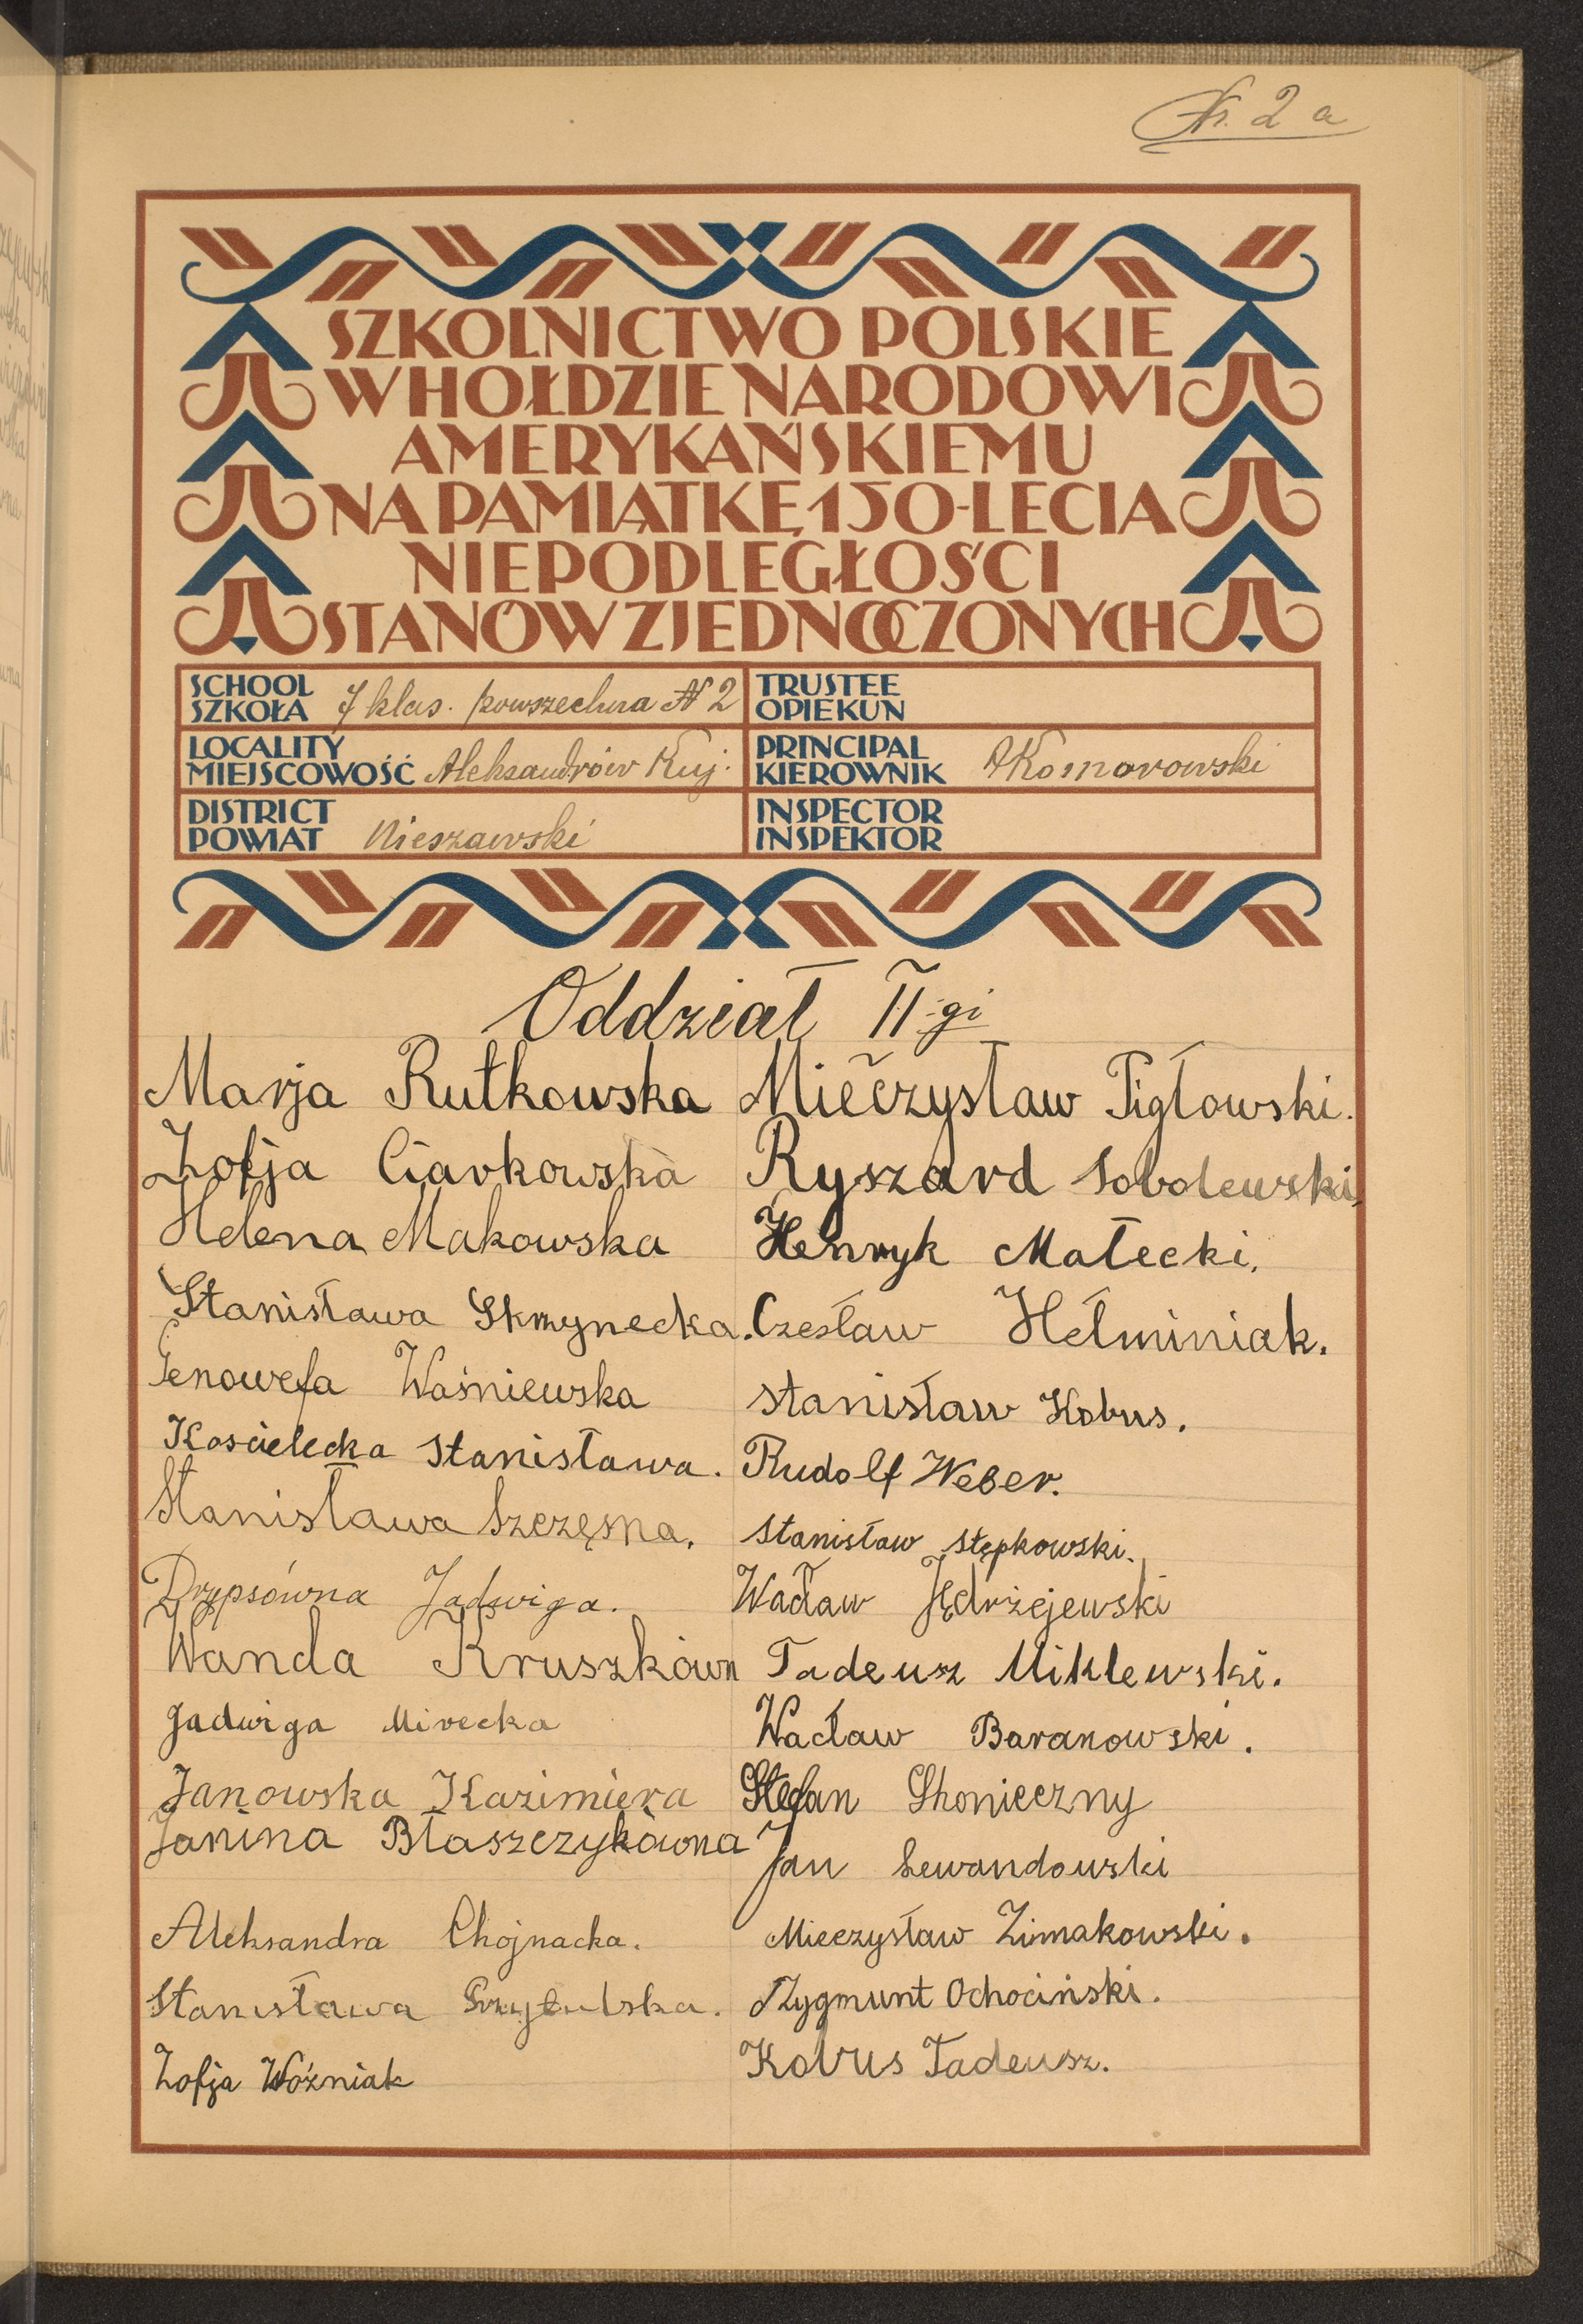 Nr. 2 a
SZKOLNICTWO POLSKIE
W HOŁDZIE NARODOWI
AMERYKAŃSKIEMU
NA PAMIĄTKĘ 150-LECIA
NIEPODLEGŁOŚCI
STANÓW ZJEDNOCZONYCH
SCHOOL
SZKOŁA 7 klas. powszechna N 2
TRUSTEE
OPIEKUN
LOCALITY
MIEJSCOWOŚĆ Aleksandrów Kuj.
PRINCIPAL
KIEROWNIK AKomorowski
DISTRICT
POWIAT Nieszawski
INSPECTOR
INSPEKTOR
Oddział II-gi
Marja Rutkowska
Zofja Ciarkowska
Helena Makowska
Stanisława Skrzynecka.
Genowefa Waśniewska
Koscielecka Stanisława.
Stanisława Szczęsna.
Drypsówna Jadwiga.
Wanda Kruszkówn
Jadwiga Mirecka
Janowska Kazimiera
Janina Błaszczykówna
Aleksandra Chojnacka.
Stanisława
Zofja Woźniak
Mieczysław Pigłowski.
Ryszard Sobolewski,
Henryk Małecki.
Czesław Hełminiak.
Stanisław Kobus.
Rudolf Weber.
Stanisław Stępkowski.
Wacław Jędrzejewski
Tadeusz Miklewski.
Wacław Baranowski.
Stefan Skonieczny
Jan Lewandowski
Mieczysław Zimakowski.
Zygmunt Ochociński.
Kobus Tadeusz.